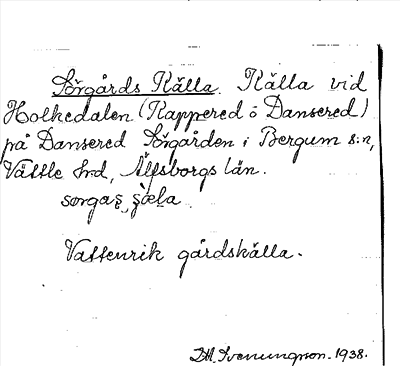 Sörgårds Källa. Källa vid
Holkedalen (Kappered ö Dansered)
på Dansered Sörgården i Bergum s:n,
Vättle hd, Älfsborgs län.
sørgaʂ ʂæla
Vattenrik gårdskälla.
D.H. Svenungsson. 1938.